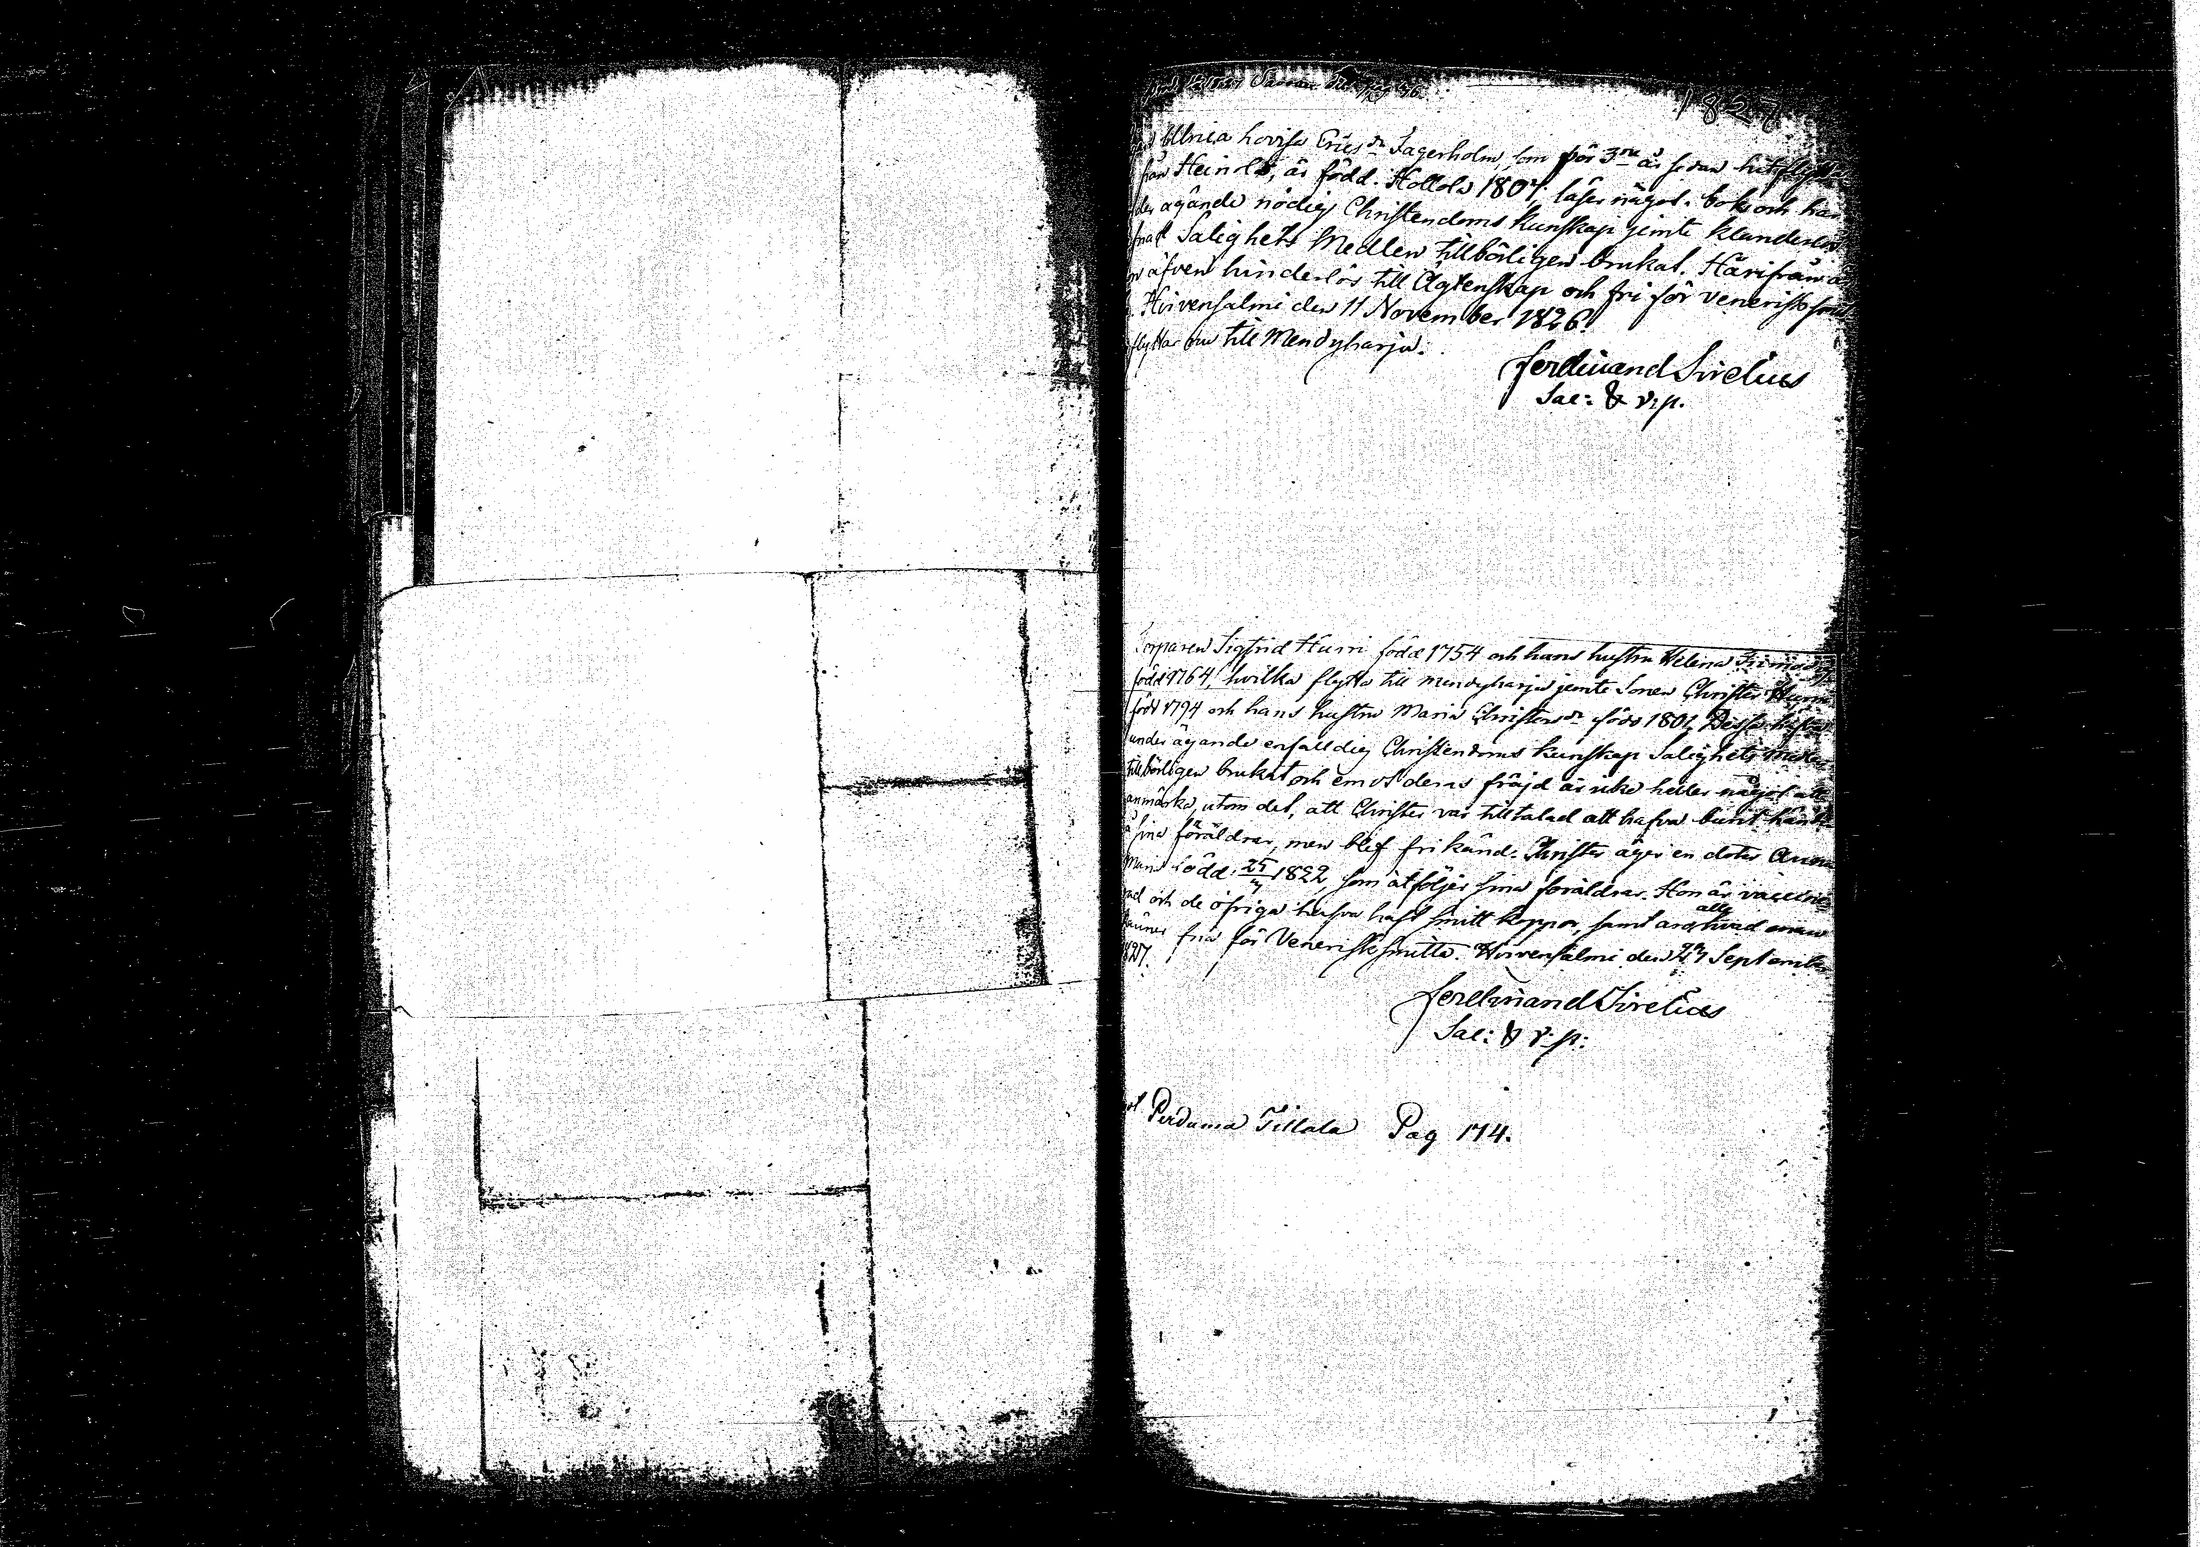 1827
Ulrica Lovisa Erics dr Lagerholm, som för 3ne år sedan hitflyttat
från Heinola, är född i Hollola 1807, läser något i bok och har
under ägande nödig Christendoms kunskap jemte klanderlös
Salighets Medlen tillbörligen brukat. Härifrån är
hon äfven hinderlös till Ägtenskap och fri för venerisk smitta
Hirvensalmi den 11 November 1826.
flyttar nu till Mendyharju.
Ferdinand Sirelius
Sac: & v.p.
Torparen Sigfrid Hurri född 1754 och hans hustru Helena
född 1764, hvilka flytta till Mendyharju jemte Sonen Christer Hurri
född 1794 och hans hustru Maria Christers dr född 1801. Dessa hafva
under ägande enfalldig Christendoms kunskap Salighets medlen
tillbörligen brukat och emot deras fräjd är icke heller något att
anmärka, utom det, att Christer var tilltalad att hafva burit hand
å sina föräldrar, men blef frikänd. Christer äger en doter Anna
Maria född 25/4 1822, som åtföljer sina föräldrar. Hon är vaccine-
rad och de öfriga hafva haft smitt koppor, samt äro alla hvad man
känner fria för Venerisk smitta. Hirvensalmi den September
1827.
Ferdinand Sirelius
Sac: & v.p:
Perduma Tillala Pag 174.